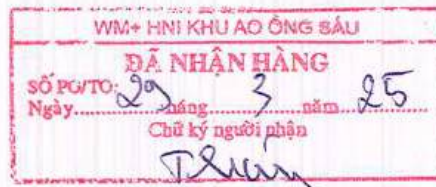 WM+ HNI KHU AO ÔNG SÁU
ĐÃ NHẬN HÀNG
SỐ PO/TO:
Ngày 29 tháng 3 năm 25
Chữ ký người nhận